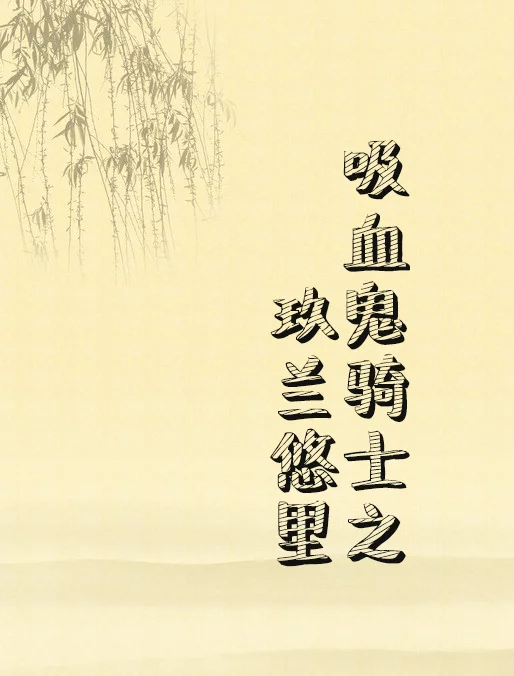 吸血鬼骑士之
玖兰悠里